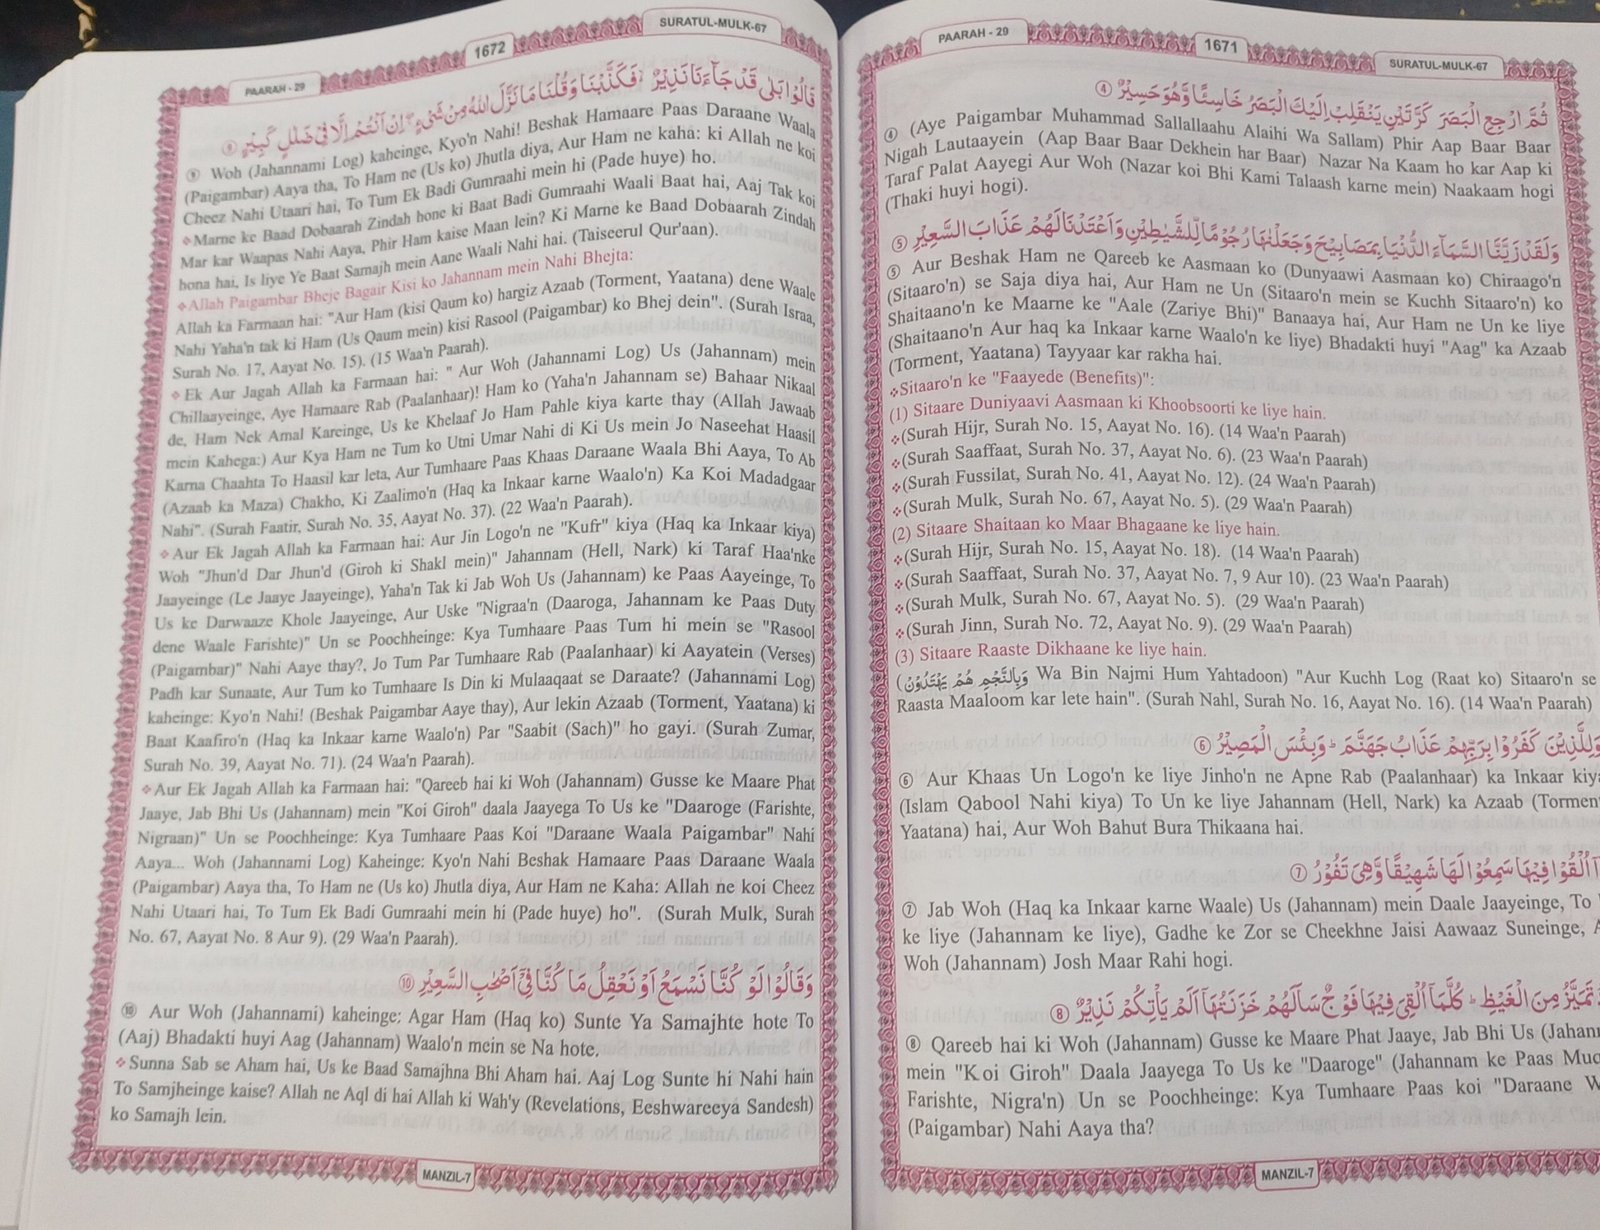 PAARAH - 29
1671
SURATUL-MULK-67
ثُمَّ ارْجِعِ الْبَصَرَ كَرَّتَيْنِ يَنْقَلِبْ اِلَيْكَ الْبَصَرُ خَاسِئًا وَّهُوَ حَسِيْرٌ ④
④ (Aye Paigambar Muhammad Sallallaahu Alaihi Wa Sallam) Phir Aap Baar Baar
Nigah Lautaayein (Aap Baar Baar Dekhein har Baar) Nazar Na Kaam ho kar Aap ki
Taraf Palat Aayegi Aur Woh (Nazar koi Bhi Kami Talaash karne mein) Naakaam hogi
(Thaki huyi hogi).
وَلَقَدْ زَيَّنَّا السَّمَآءَ الدُّنْيَا بِمَصَابِيْحَ وَجَعَلْنٰهَا رُجُوْمًا لِّلشَّيٰطِيْنِ وَاَعْتَدْنَا لَهُمْ عَذَابَ السَّعِيْرِ ⑤
⑤ Aur Beshak Ham ne Qareeb ke Aasmaan ko (Dunyaawi Aasmaan ko) Chiraago'n
(Sitaaro'n) se Saja diya hai, Aur Ham ne Un (Sitaaro'n mein se Kuchh Sitaaro'n) ko
Shaitaano'n ke Maarne ke "Aale (Zariye Bhi)" Banaaya hai, Aur Ham ne Un ke liye
(Shaitaano'n Aur haq ka Inkaar karne Waalo'n ke liye) Bhadakti huyi "Aag" ka Azaab
(Torment, Yaatana) Tayyaar kar rakha hai.
❖Sitaaro'n ke "Faayede (Benefits)":
(1) Sitaare Duniyaavi Aasmaan ki Khoobsoorti ke liye hain.
❖(Surah Hijr, Surah No. 15, Aayat No. 16). (14 Waa'n Paarah)
❖(Surah Saaffaat, Surah No. 37, Aayat No. 6). (23 Waa'n Paarah)
❖(Surah Fussilat, Surah No. 41, Aayat No. 12). (24 Waa'n Paarah)
❖(Surah Mulk, Surah No. 67, Aayat No. 5). (29 Waa'n Paarah)
(2) Sitaare Shaitaan ko Maar Bhagaane ke liye hain.
❖(Surah Hijr, Surah No. 15, Aayat No. 18). (14 Waa'n Paarah)
❖(Surah Saaffaat, Surah No. 37, Aayat No. 7, 9 Aur 10). (23 Waa'n Paarah)
❖(Surah Mulk, Surah No. 67, Aayat No. 5). (29 Waa'n Paarah)
❖(Surah Jinn, Surah No. 72, Aayat No. 9). (29 Waa'n Paarah)
(3) Sitaare Raaste Dikhaane ke liye hain.
(وَبِالنَّجْمِ هُمْ يَهْتَدُوْنَ Wa Bin Najmi Hum Yahtadoon) "Aur Kuchh Log (Raat ko) Sitaaro'n se
Raasta Maaloom kar lete hain". (Surah Nahl, Surah No. 16, Aayat No. 16). (14 Waa'n Paarah)
وَلِلَّذِيْنَ كَفَرُوْا بِرَبِّهِمْ عَذَابُ جَهَنَّمَ ؕ وَبِئْسَ الْمَصِيْرُ ⑥
⑥ Aur Khaas Un Logo'n ke liye Jinho'n ne Apne Rab (Paalanhaar) ka Inkaar
(Islam Qabool Nahi kiya) To Un ke liye Jahannam (Hell, Nark) ka Azaab
Yaatana) hai, Aur Woh Bahut Bura Thikaana hai.
اُلْقُوْا فِيْهَا سَمِعُوْا لَهَا شَهِيْقًا وَّهِىَ تَفُوْرُ ⑦
⑦ Jab Woh (Haq ka Inkaar karne Waale) Us (Jahannam) mein Daale Jaayeinge, To
ke liye (Jahannam ke liye), Gadhe ke Zor se Cheekhne Jaisi Aawaaz Suneinge,
Woh (Jahannam) Josh Maar Rahi hogi.
تَمَيَّزُ مِنَ الْغَيْظِ ؕ كُلَّمَاۤ اُلْقِىَ فِيْهَا فَوْجٌ سَاَلَهُمْ خَزَنَتُهَاۤ اَلَمْ يَاْتِكُمْ نَذِيْرٌ ⑧
⑧ Qareeb hai ki Woh (Jahannam) Gusse ke Maare Phat Jaaye, Jab Bhi Us
mein "Koi Giroh" Daala Jaayega To Us ke "Daaroge" (Jahannam ke Paas
Farishte, Nigra'n) Un se Poochheinge: Kya Tumhaare Paas koi "Daraane
(Paigambar) Nahi Aaya tha?
MANZIL-7
PAARAH - 29
1672
SURATUL-MULK-67
قَالُوْا بَلٰى قَدْ جَآءَنَا نَذِيْرٌ ۙ فَكَذَّبْنَا وَقُلْنَا مَا نَزَّلَ اللّٰهُ مِنْ شَىْءٍ ۚ اِنْ اَنْتُمْ اِلَّا فِىْ ضَلٰلٍ كَبِيْرٍ ⑨
⑨ Woh (Jahannami Log) kaheinge, Kyo'n Nahi! Beshak Hamaare Paas Daraane Waala
(Paigambar) Aaya tha, To Ham ne (Us ko) Jhutla diya, Aur Ham ne kaha: ki Allah ne koi
Cheez Nahi Utaari hai, To Tum Ek Badi Gumraahi mein hi (Pade huye) ho.
❖Marne ke Baad Dobaarah Zindah hone ki Baat Badi Gumraahi Waali Baat hai, Aaj Tak koi
Mar kar Waapas Nahi Aaya, Phir Ham kaise Maan lein? Ki Marne ke Baad Dobaarah Zindah
hona hai, Is liye Ye Baat Samajh mein Aane Waali Nahi hai. (Taiseerul Qur'aan).
❖Allah Paigambar Bheje Bagair Kisi ko Jahannam mein Nahi Bhejta:
Allah ka Farmaan hai: "Aur Ham (kisi Qaum ko) hargiz Azaab (Torment, Yaatana) dene Waale
Nahi Yaha'n tak ki Ham (Us Qaum mein) kisi Rasool (Paigambar) ko Bhej dein". (Surah Israa,
Surah No. 17, Aayat No. 15). (15 Waa'n Paarah).
❖ Ek Aur Jagah Allah ka Farmaan hai: " Aur Woh (Jahannami Log) Us (Jahannam) mein
Chillaayeinge, Aye Hamaare Rab (Paalanhaar)! Ham ko (Yaha'n Jahannam se) Bahaar Nikaal
de, Ham Nek Amal Kareinge, Us ke Khelaaf Jo Ham Pahle kiya karte thay (Allah Jawaab
mein Kahega:) Aur Kya Ham ne Tum ko Utni Umar Nahi di Ki Us mein Jo Naseehat Haasil
Karna Chaahta To Haasil kar leta, Aur Tumhaare Paas Khaas Daraane Waala Bhi Aaya, To Ab
(Azaab ka Maza) Chakho, Ki Zaalimo'n (Haq ka Inkaar karne Waalo'n) Ka Koi Madadgaar
Nahi". (Surah Faatir, Surah No. 35, Aayat No. 37). (22 Waa'n Paarah).
❖ Aur Ek Jagah Allah ka Farmaan hai: Aur Jin Logo'n ne "Kufr" kiya (Haq ka Inkaar kiya)
Woh "Jhun'd Dar Jhun'd (Giroh ki Shakl mein)" Jahannam (Hell, Nark) ki Taraf Haa'nke
Jaayeinge (Le Jaaye Jaayeinge), Yaha'n Tak ki Jab Woh Us (Jahannam) ke Paas Aayeinge, To
Us ke Darwaaze Khole Jaayeinge, Aur Uske "Nigraa'n (Daaroga, Jahannam ke Paas Duty
dene Waale Farishte)" Un se Poochheinge: Kya Tumhaare Paas Tum hi mein se "Rasool
(Paigambar)" Nahi Aaye thay?, Jo Tum Par Tumhaare Rab (Paalanhaar) ki Aayatein (Verses)
Padh kar Sunaate, Aur Tum ko Tumhaare Is Din ki Mulaaqaat se Daraate? (Jahannami Log)
kaheinge: Kyo'n Nahi! (Beshak Paigambar Aaye thay), Aur lekin Azaab (Torment, Yaatana) ki
Baat Kaafiro'n (Haq ka Inkaar karne Waalo'n) Par "Saabit (Sach)" ho gayi. (Surah Zumar,
Surah No. 39, Aayat No. 71). (24 Waa'n Paarah).
❖ Aur Ek Jagah Allah ka Farmaan hai: "Qareeb hai ki Woh (Jahannam) Gusse ke Maare Phat
Jaaye, Jab Bhi Us (Jahannam) mein "Koi Giroh" daala Jaayega To Us ke "Daaroge (Farishte,
Nigraan)" Un se Poochheinge: Kya Tumhaare Paas Koi "Daraane Waala Paigambar" Nahi
Aaya... Woh (Jahannami Log) Kaheinge: Kyo'n Nahi Beshak Hamaare Paas Daraane Waala
(Paigambar) Aaya tha, To Ham ne (Us ko) Jhutla diya, Aur Ham ne Kaha: Allah ne koi Cheez
Nahi Utaari hai, To Tum Ek Badi Gumraahi mein hi (Pade huye) ho". (Surah Mulk, Surah
No. 67, Aayat No. 8 Aur 9). (29 Waa'n Paarah).
وَقَالُوْا لَوْ كُنَّا نَسْمَعُ اَوْ نَعْقِلُ مَا كُنَّا فِىْۤ اَصْحٰبِ السَّعِيْرِ ⑩
⑩ Aur Woh (Jahannami) kaheinge: Agar Ham (Haq ko) Sunte Ya Samajhte hote To
(Aaj) Bhadakti huyi Aag (Jahannam) Waalo'n mein se Na hote.
❖Sunna Sab se Aham hai, Us ke Baad Samajhna Bhi Aham hai. Aaj Log Sunte hi Nahi hain
To Samjheinge kaise? Allah ne Aql di hai Allah ki Wah'y (Revelations, Eeshwareeya Sandesh)
ko Samajh lein.
MANZIL-7